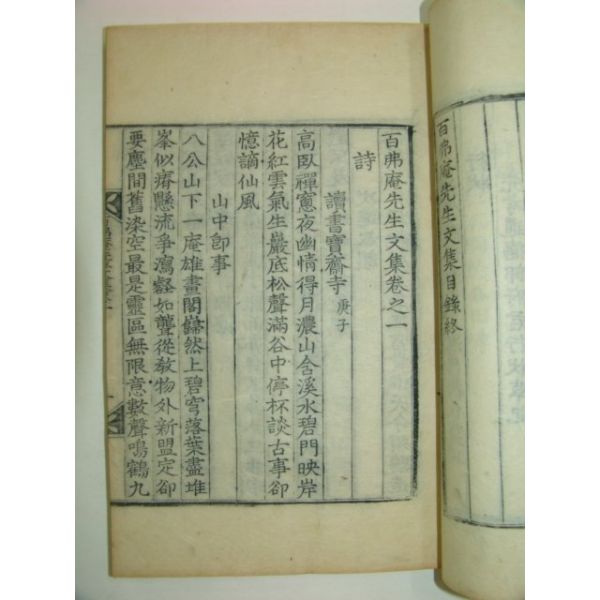 百弗庵先生文集目錄終
百弗庵先生文集卷之一
詩
讀書寶齋寺 庚子
高臥禪窻夜幽情得月濃山含溪水碧門映岸
花紅雲氣生巖底松聲滿谷中停杯談古事卻
憶謫仙風
山中卽事
八公山下一庵雄畫閣巋然上碧穹落葉盡堆
峯似瘠懸流爭瀉壑如聾從敎物外新盟定卻
要塵間舊染空最是靈區無限意數聲鳴鶴九